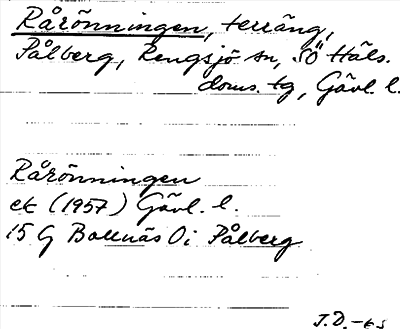 Rårönningen, terräng,
Pålberg, Rengsjö sn, SÖ Häls.
doms. tg, Gävl. l.
Rårönningen
ek (1957) Gävl. l.
15 G Bollnäs 0i Pålberg
J.D.-